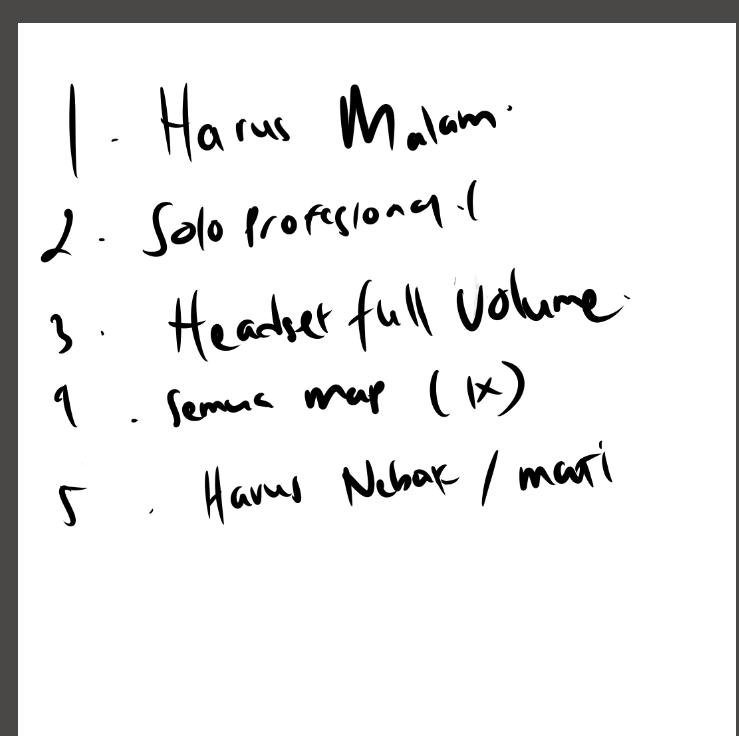 1. Harus Malam.
2. Solo profesional
3. Headset full volume.
4. Semua map (1x)
5. Harus Nebak / mati